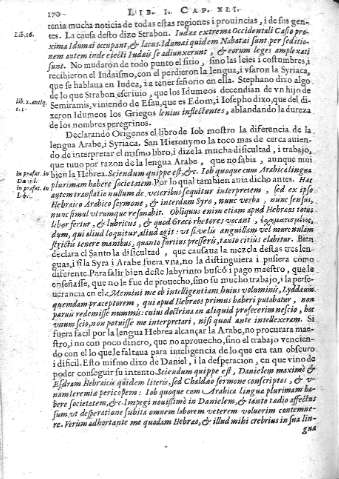 170 LIB. I. CAP. XLI.
tenia mucha noticia de todas estas regiones i prouincias, i de sus gen-
Lib.16. tes. La causa desto dize Strabon. Iudæa extrema Occidentali Casio pro-
xima Idumæi occupant, & lacus. Idumæi quidem Nabatæi sunt per seditio-
nem autem inde eiecti Iudæis se adiunxerunt, & eorum leges amplexati
sunt. No mudaron de todo punto el sitio, sino las leies i costumbres, i
recibieron el Iudaismo, con el perdieron la lengua, i vsaron la Syriaca,
que se hablaua en Iudea, i a tener señorio en ella. Stephano dixo algo
de lo que Strabon escriuio, que los Idumeos decendian de vn hijo de
Semiramis, viniendo de Esau, que es Edom, i Iosepho dixo, que del di-
xeron Idumeos los Griegos lenius inflectentes, ablandando la dureza
de los nombres peregrinos.
Declarando Origenes el libro de Iob mostro la diferencia de la
lengua Arabe, i Syriaca. San Hieronymo la toco mas de cerca auien-
do de interpretar el mismo libro, i dize la mucha dificultad, i trabajo,
que tuuo por razon de la lengua Arabe, que no sabia, aunque mui
bien la Hebrea. Sciendum quippe est, &c. Iob quoque cum Arabica lingua
plurimam habere societatem. Por lo qual tambien auia dicho antes. Hæc
autem translatio nullum de veteribus sequitur interpretem, sed ex ipso
Hebraico Arabicoque sermone, & interdum Syro, nunc verba, nunc sensus,
nunc simul vtrumque resonabit. Obliquus enim etiam apud Hebræos totus
liber fertur, & lubricus, & quod Græci rhetores vocant
dum, qui aliud loquitur, aliud agit: vt si velis anguillam vel murænulam
strictis tenere manibus, quanto fortius presseris, tanto citius elabitur. Bien
declara el Santo la dificultad, que causaua la mezcla destas tres len-
guas, i si la Syra i Arabe fuera vna, no la distinguiera i pusiera como
diferente. Para salir bien deste labyrinto buscó i pago maestro, que le
enseñasse, que no le fue de prouecho, sino su mucho trabajo, i la perse-
uerancia en ella. Memini me ob intelligentiam huius voluminis, Lyddæum
quendam præceptorem, qui apud Hebræos primus haberi putabatur, non
paruis redemisse nummis: cuius doctrina an aliquid profecerim nescio, hoc
vnum scio, non potuisse me interpretari, nisi quod ante intellexeram. Si
fuera facil por la lengua Hebrea alcançar la Arabe, no procurara maes-
tro, i no con poco dinero, que no aprouechó, sino el trabajo vencien-
do con el lo que le faltaua para inteligencia de lo que era tan obscuro
i dificil. Esto mismo dixo de Daniel, i la desperacion, en que vino de
poder conseguir su intento. Sciendum quippe est, Danielem maxime &
Esdram Hebraicis quidem literis, sed Chaldæo sermone conscriptos, & v-
nam Ieremiæ pericopem: Iob quoque cum Arabica lingua plurimam ha-
bere societatem, &c. Impegi nouissime in Danielem, & tanto tædio affectus
sum, vt desperatione subita omnem laborem veterem voluerim contemne-
re. Verum adhortante me quodam Hebræo, & illud mihi crebrius in sua lin-
gua